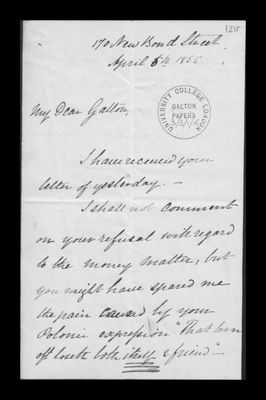 f215r
170 New Bond Street.
April 5th 1856
UNIVERSITY COLLEGE LONDON
GALTON
PAPERS
My Dear Galton,
I have received your
letter of yesterday. —
I shall not comment
on your refusal with regard
to the money matter, but
you might have spared me
the pain caused by your
Polonic expression "That loan
oft loseth both itself & friend" —